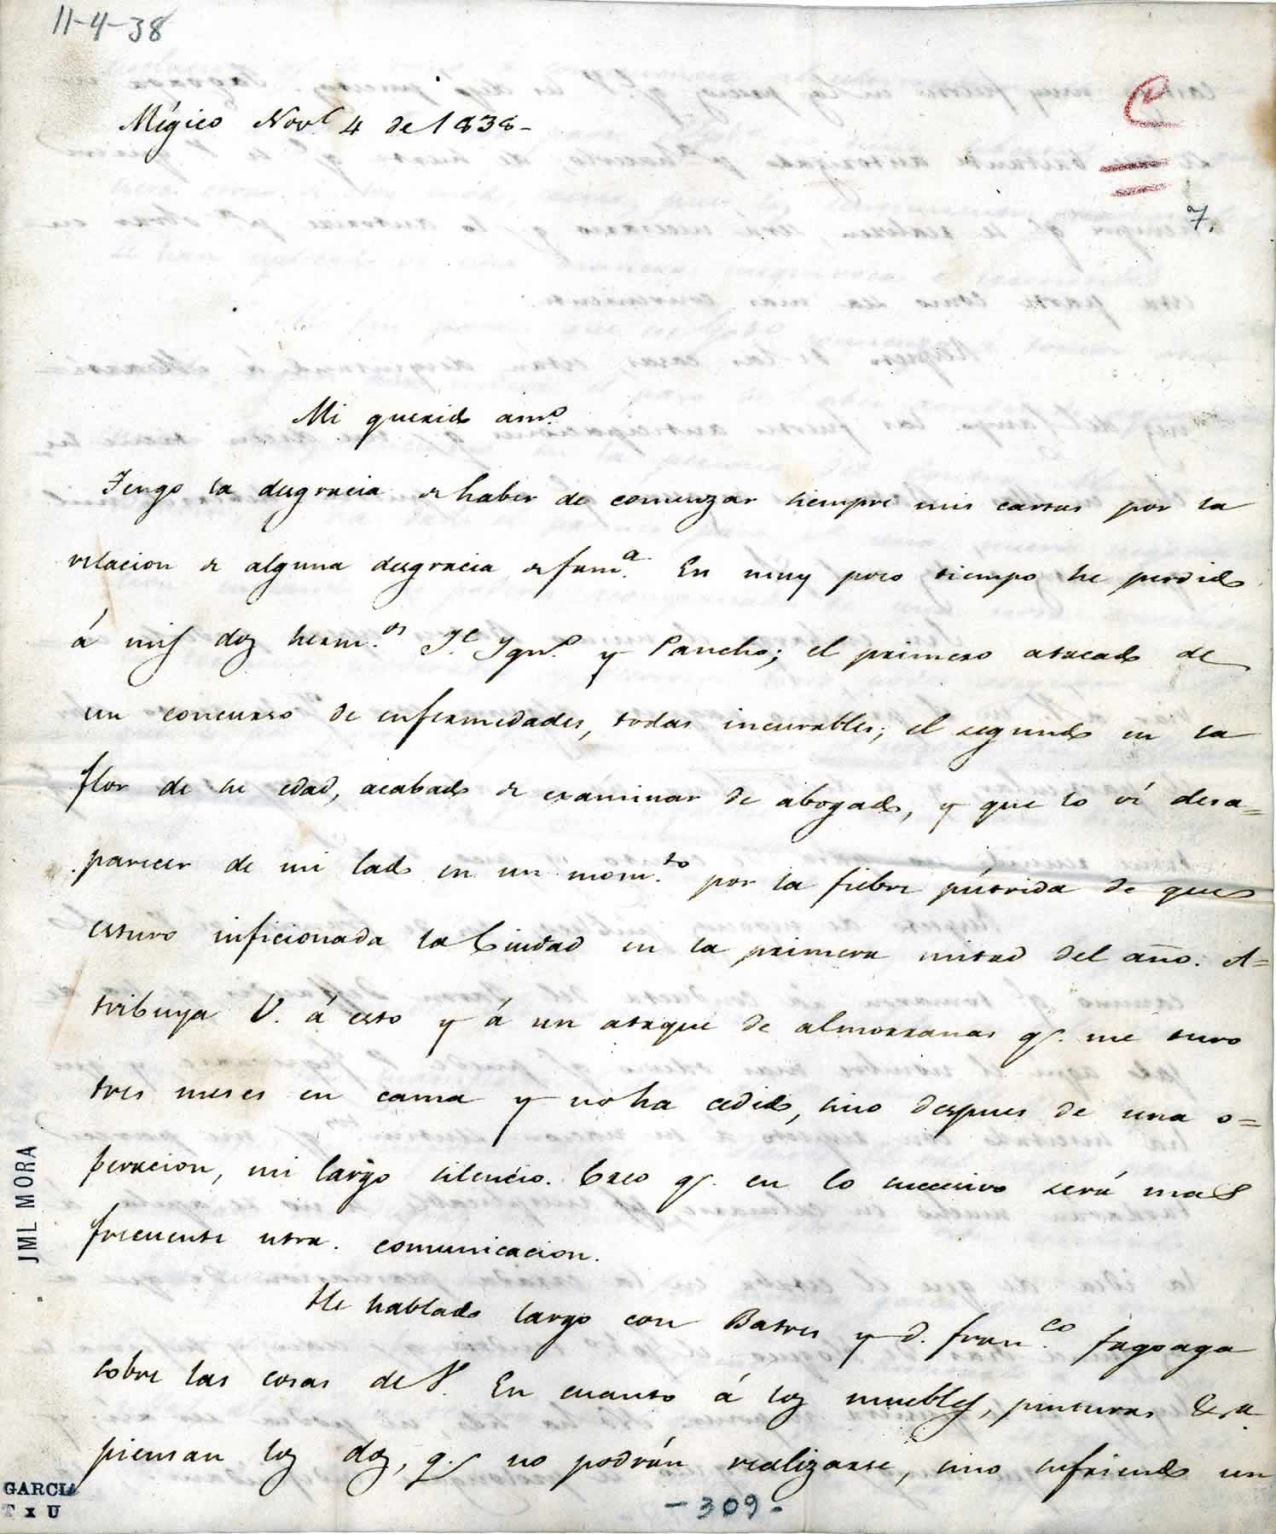 11-4-38
Mégico Nov.e 4 de 1838-
7.
Mi querido am.o
Tengo la desgracia de haber de comenzar siempre mis cartas por la
relacion de alguna desgracia de fam.a En muy poco tiempo he perdido
á mis dos herm.os J.e Ygn.o y Pancho; el primero atacado de
un concurso de enfermedades, todas incurables; el segundo en la
flor de su edad, acabado de examinar de abogado, y que lo ví desa=
parecer de mi lado en un mom.to por la fiebre pútrida de que
estuvo inficionada la Ciudad en la primera mitad del año. A=
tribuya V. á esto y á un ataque de almorranas q.e me tuvo
tres meses en cama y no ha cedido, sino despues de una o=
peracion, mi largo silencio. Creo q.e en lo succesivo será mas
frecuente ntra. comunicacion.
He hablado largo con Batres y d. Fran.co Fagoaga
sobre las cosas de V. En cuanto á los muebles, pinturas &.a
piensan los dos, q.e no podrán realizarse, sino sufriendo un
JML MORA
GARCIA
T x U
-309-